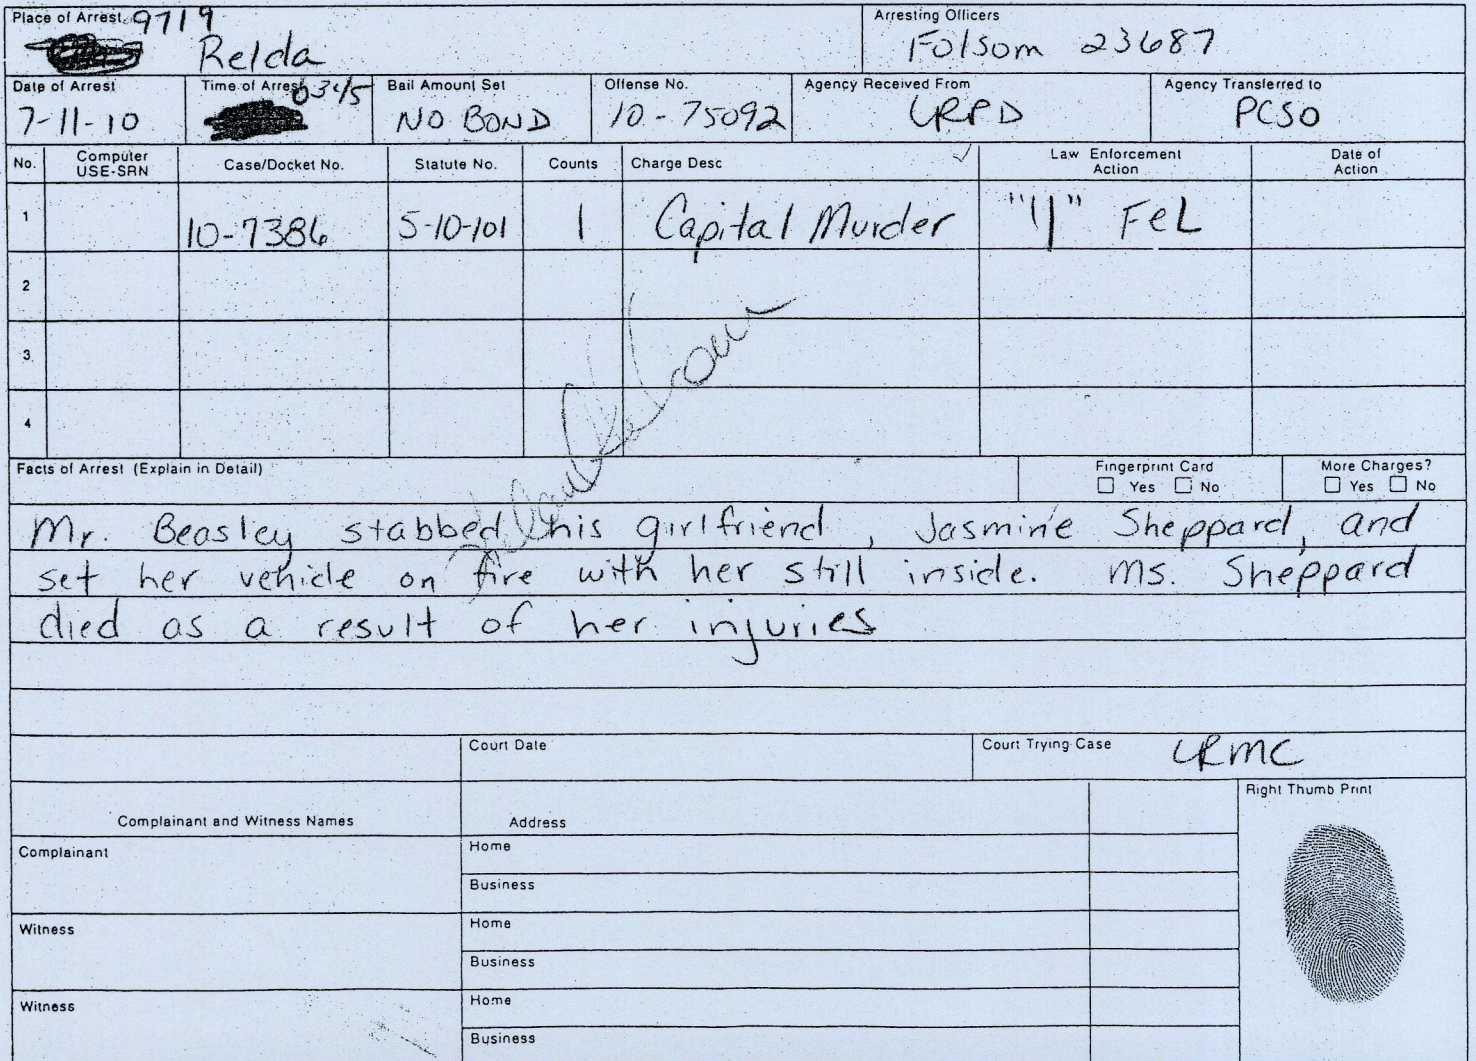 Place of Arrest 9719
Relda
Arresting Officers
Folsom 23687
Date of Arrest
7-11-10
Time of Arrest 0345
Bail Amount Set
NO BOND
Offense No.
10-75092
Agency Received From
LRPD
Agency Transferred to
PCSO
No.
Computer
USE-SRN
Case/Docket No.
Statute No.
Counts
Charge Desc
Law Enforcement
Action
Date of
Action
1
10-7386
5-10-101
1
Capital Murder
FEL
2
3
4
Facts of Arrest (Explain in Detail)
Fingerprint Card
Yes No
More Charges?
Yes No
Mr. Beasley stabbed his girlfriend, Jasmine Sheppard, and
set her vehicle on fire with her still inside. Ms. Sheppard
died as a result of her injuries
Court Date
Court Trying Case LRMC
Complainant and Witness Names
Address
Right Thumb Print
Complainant
Home
Business
Witness
Home
Business
Witness
Home
Business